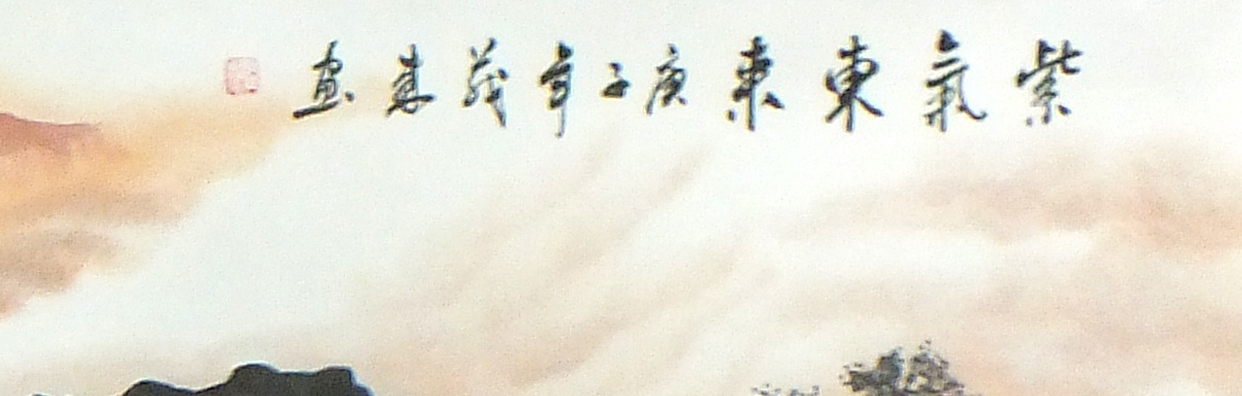 紫氣東來庚子年茂畫